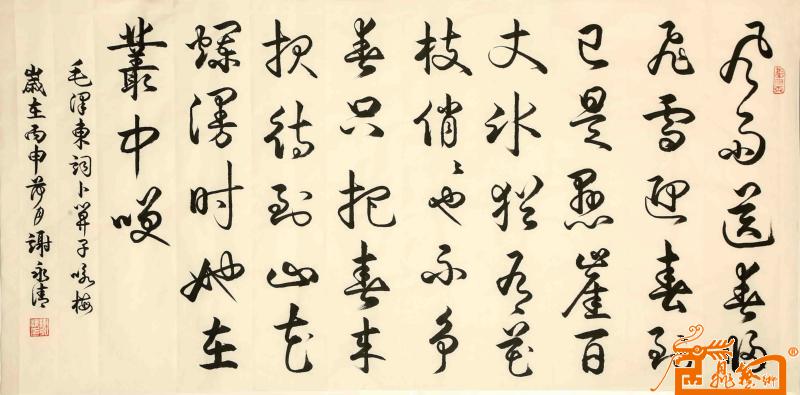 风雨送春归
飞雪迎春到
已是悬崖百
丈冰犹有花
枝俏々也不争
春只把春来
报待到山花
烂漫时她在
叢中咲
毛泽東词卜算子咏梅
歲在丙申荷月謝永清